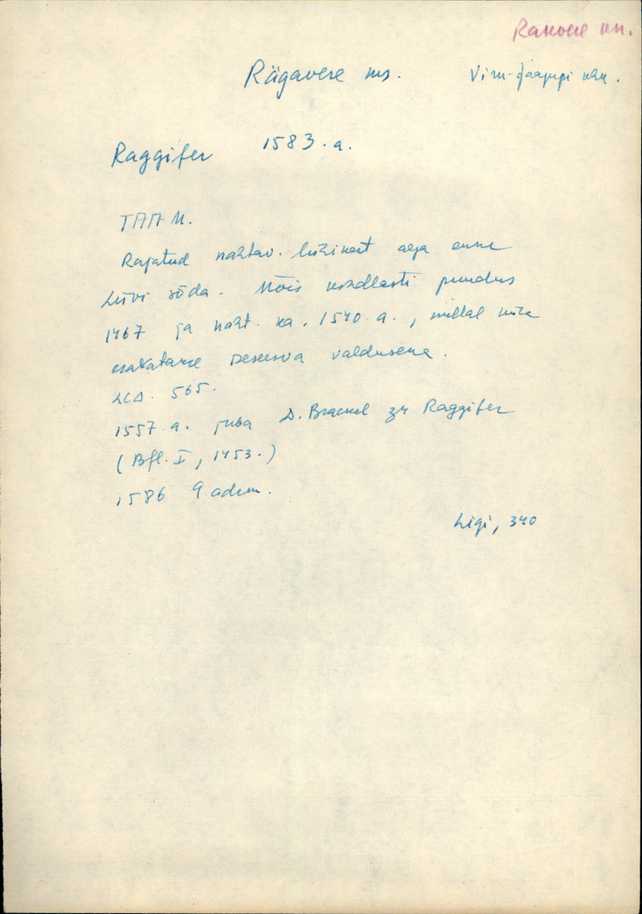 Rakvere kh.
Rägavere ms. Viru-Jaagupi khk.
Raggifer 1583. a.
TAA M.
Rajatud nähtav. lühikest aega enne
Liivi sõda. Mõis kindlasti puudus
1467 ja näht. ka 1540. a., millal
valdusena.
LCD. 565.
1557. a. juba D. Brackel zu Raggifer
(Bfl. I, 1453.)
1586 9 adram.
Ligi, 340